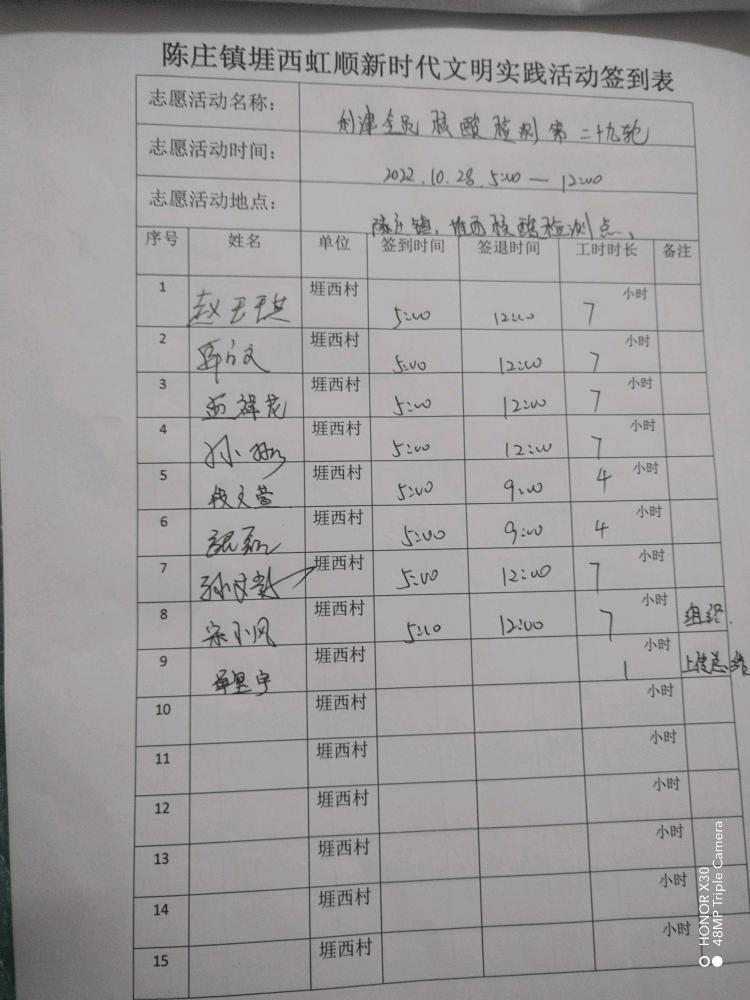 陈庄镇堐西虹顺新时代文明实践活动签到表
志愿活动名称： 利津全民核酸检测第二十九轮
志愿活动时间： 2022.10.28 5:00 — 12:00
志愿活动地点： 陈庄镇，堐西核酸检测点。
序号 姓名 单位 签到时间 签退时间 工时时长 备注
1 赵玉琪 堐西村 5:00 12:00 7 小时
2 堐西村 5:00 12:00 7 小时
3 祥花 堐西村 5:00 12:00 7 小时
4 孙 堐西村 5:00 12:00 7 小时
5 文萱 堐西村 5:00 9:00 4 小时
6 堐西村 5:00 9:00 4 小时
7 孙 堐西村 5:00 12:00 7 小时
8 宋小风 堐西村 5:00 12:00 7 小时 组织.
9 堐西村 1 小时 上传总结
10 堐西村 小时
11 堐西村 小时
12 堐西村 小时
13 堐西村 小时
14 堐西村 小时
15 堐西村 小时
HONOR X30
48MP Triple Camera